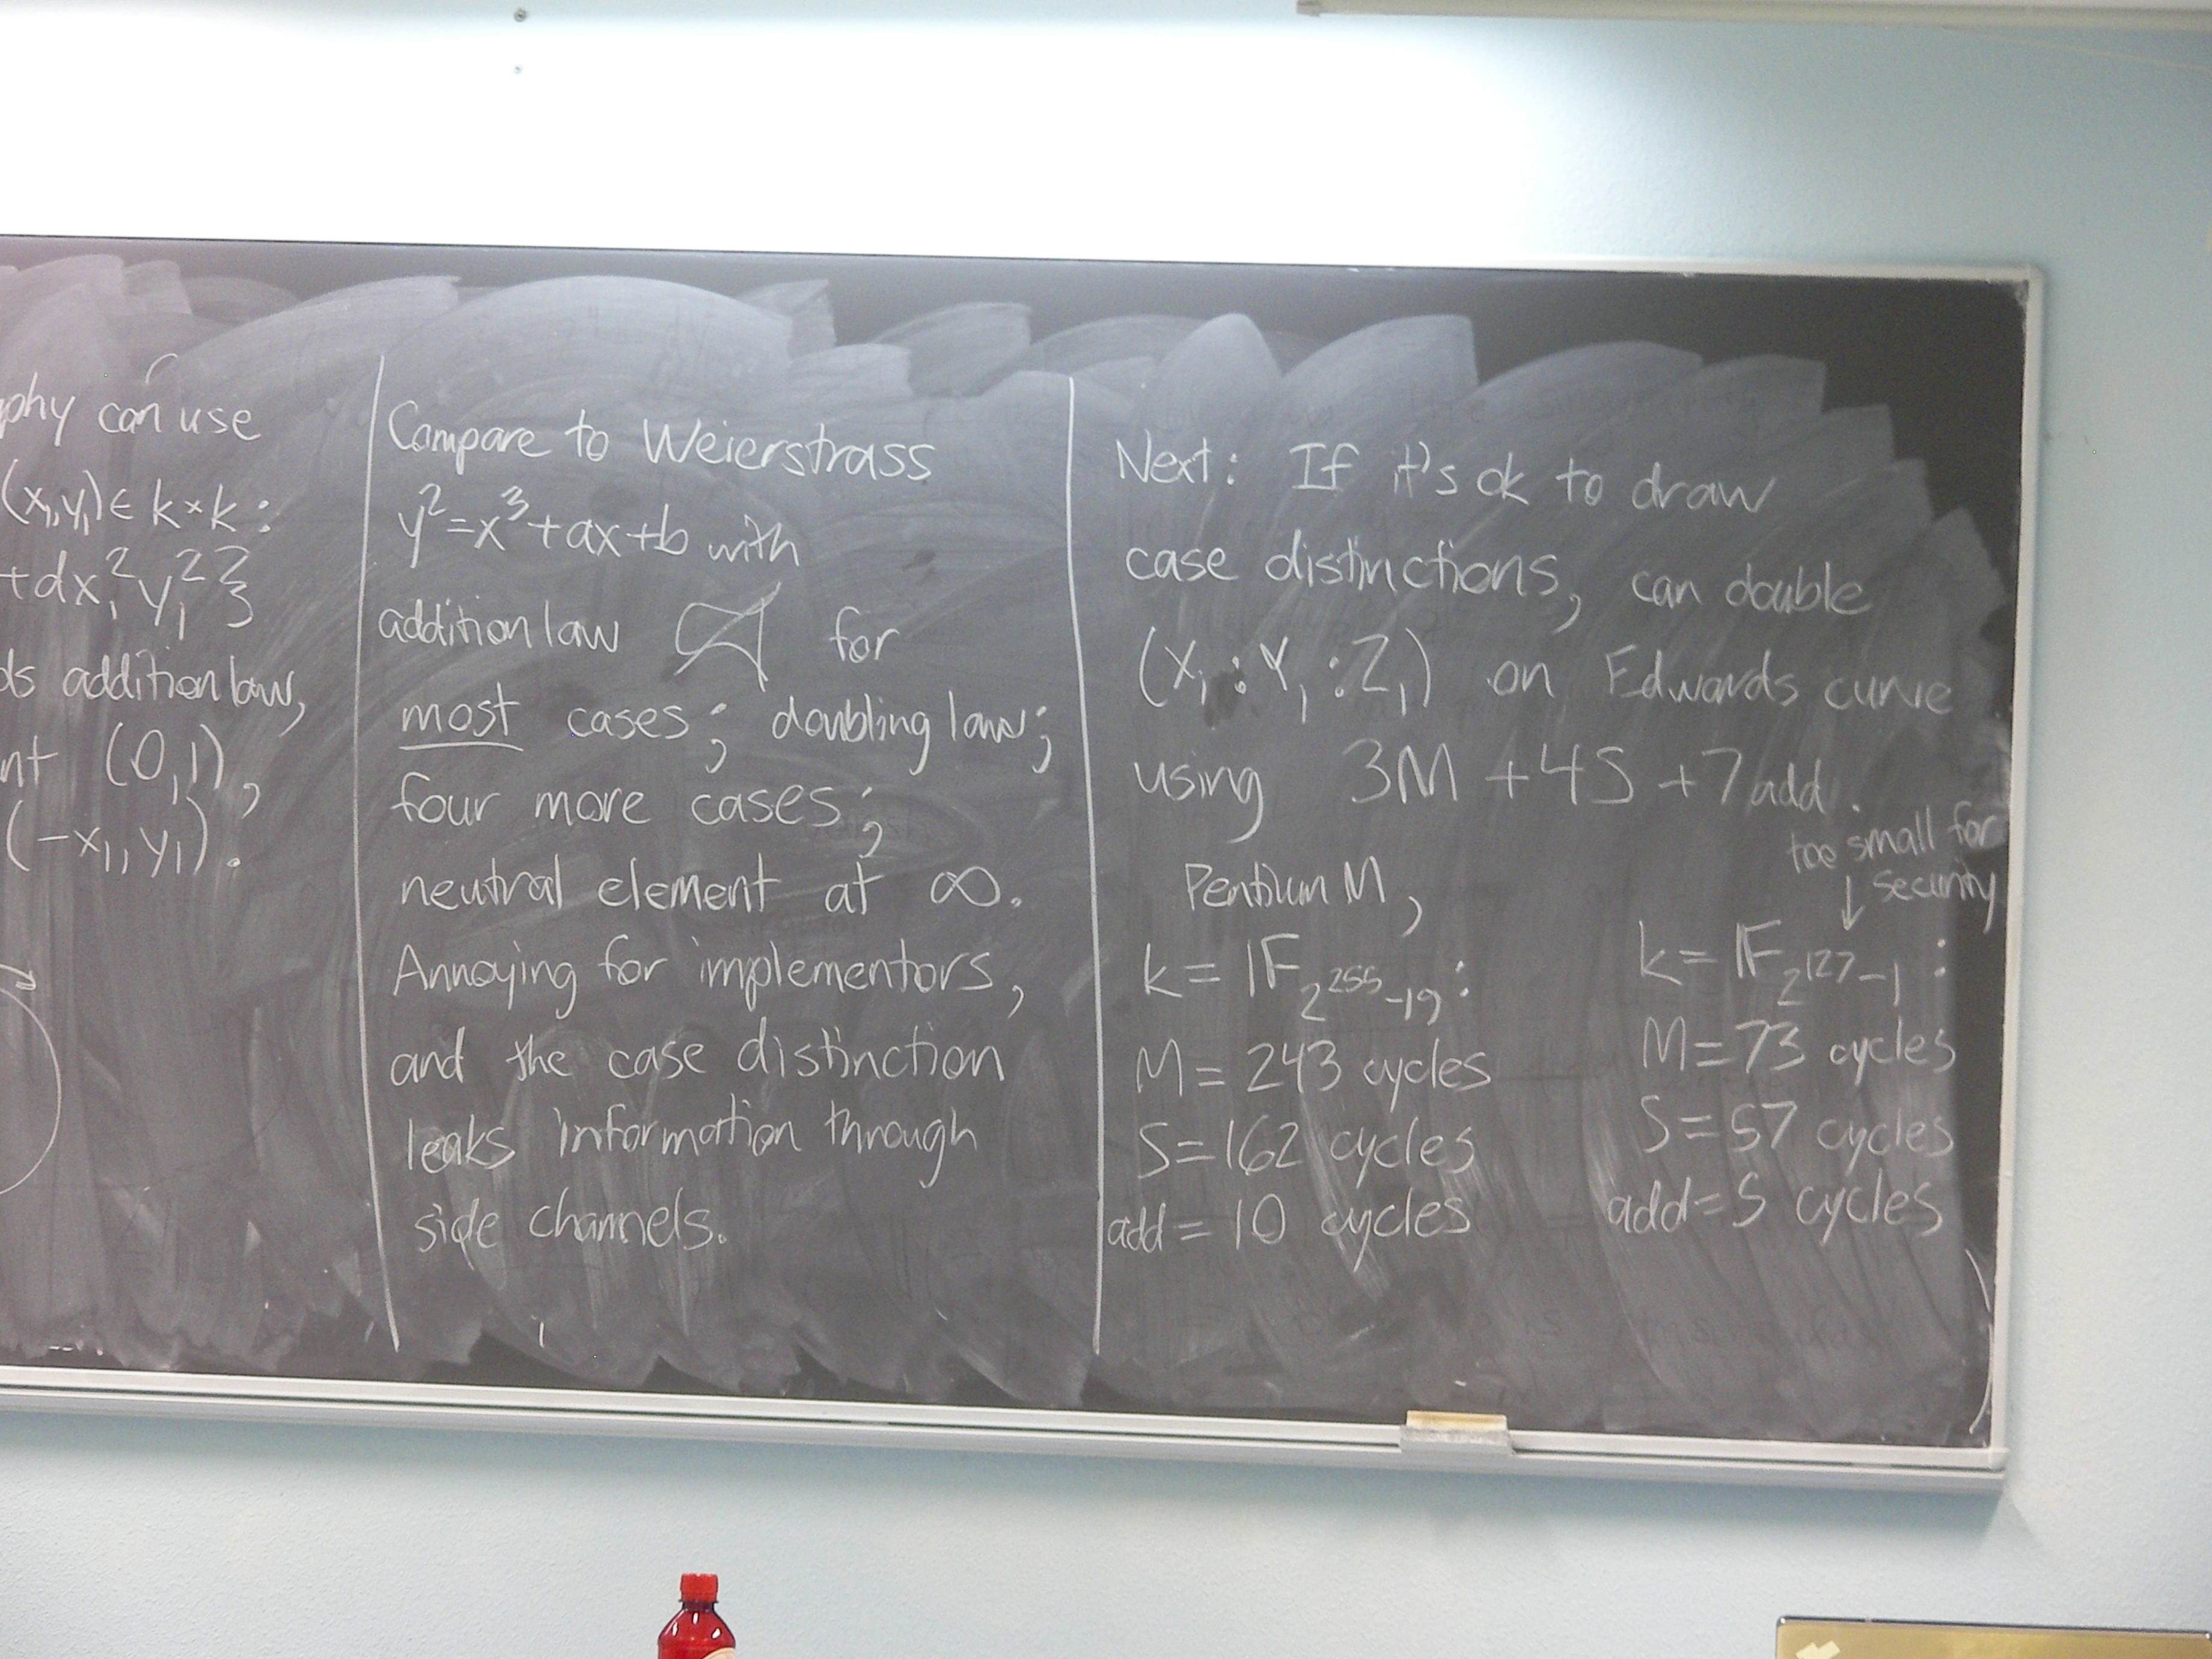 phy can use
(x₁,y₁) ∈ k×k :
+dx₁²y₁²}
ds addition law,
nt (0,1),
(-x₁,y₁).
Compare to Weierstrass
y²=x³+ax+b with
addition law for
most cases; doubling law;
four more cases;
neutral element at ∞.
Annoying for implementors,
and the case distinction
leaks information through
side channels.
Next: If it's ok to draw
case distinctions, can double
(X₁:Y₁:Z₁) on Edwards curve
using 3M+4S+7add.
too small for
↓ security
Pentium M,
k = 𝔽_{2^{255}-19}:
M = 243 cycles
S = 162 cycles
add = 10 cycles
k = 𝔽_{2^{127}-1}:
M = 73 cycles
S = 57 cycles
add = 5 cycles